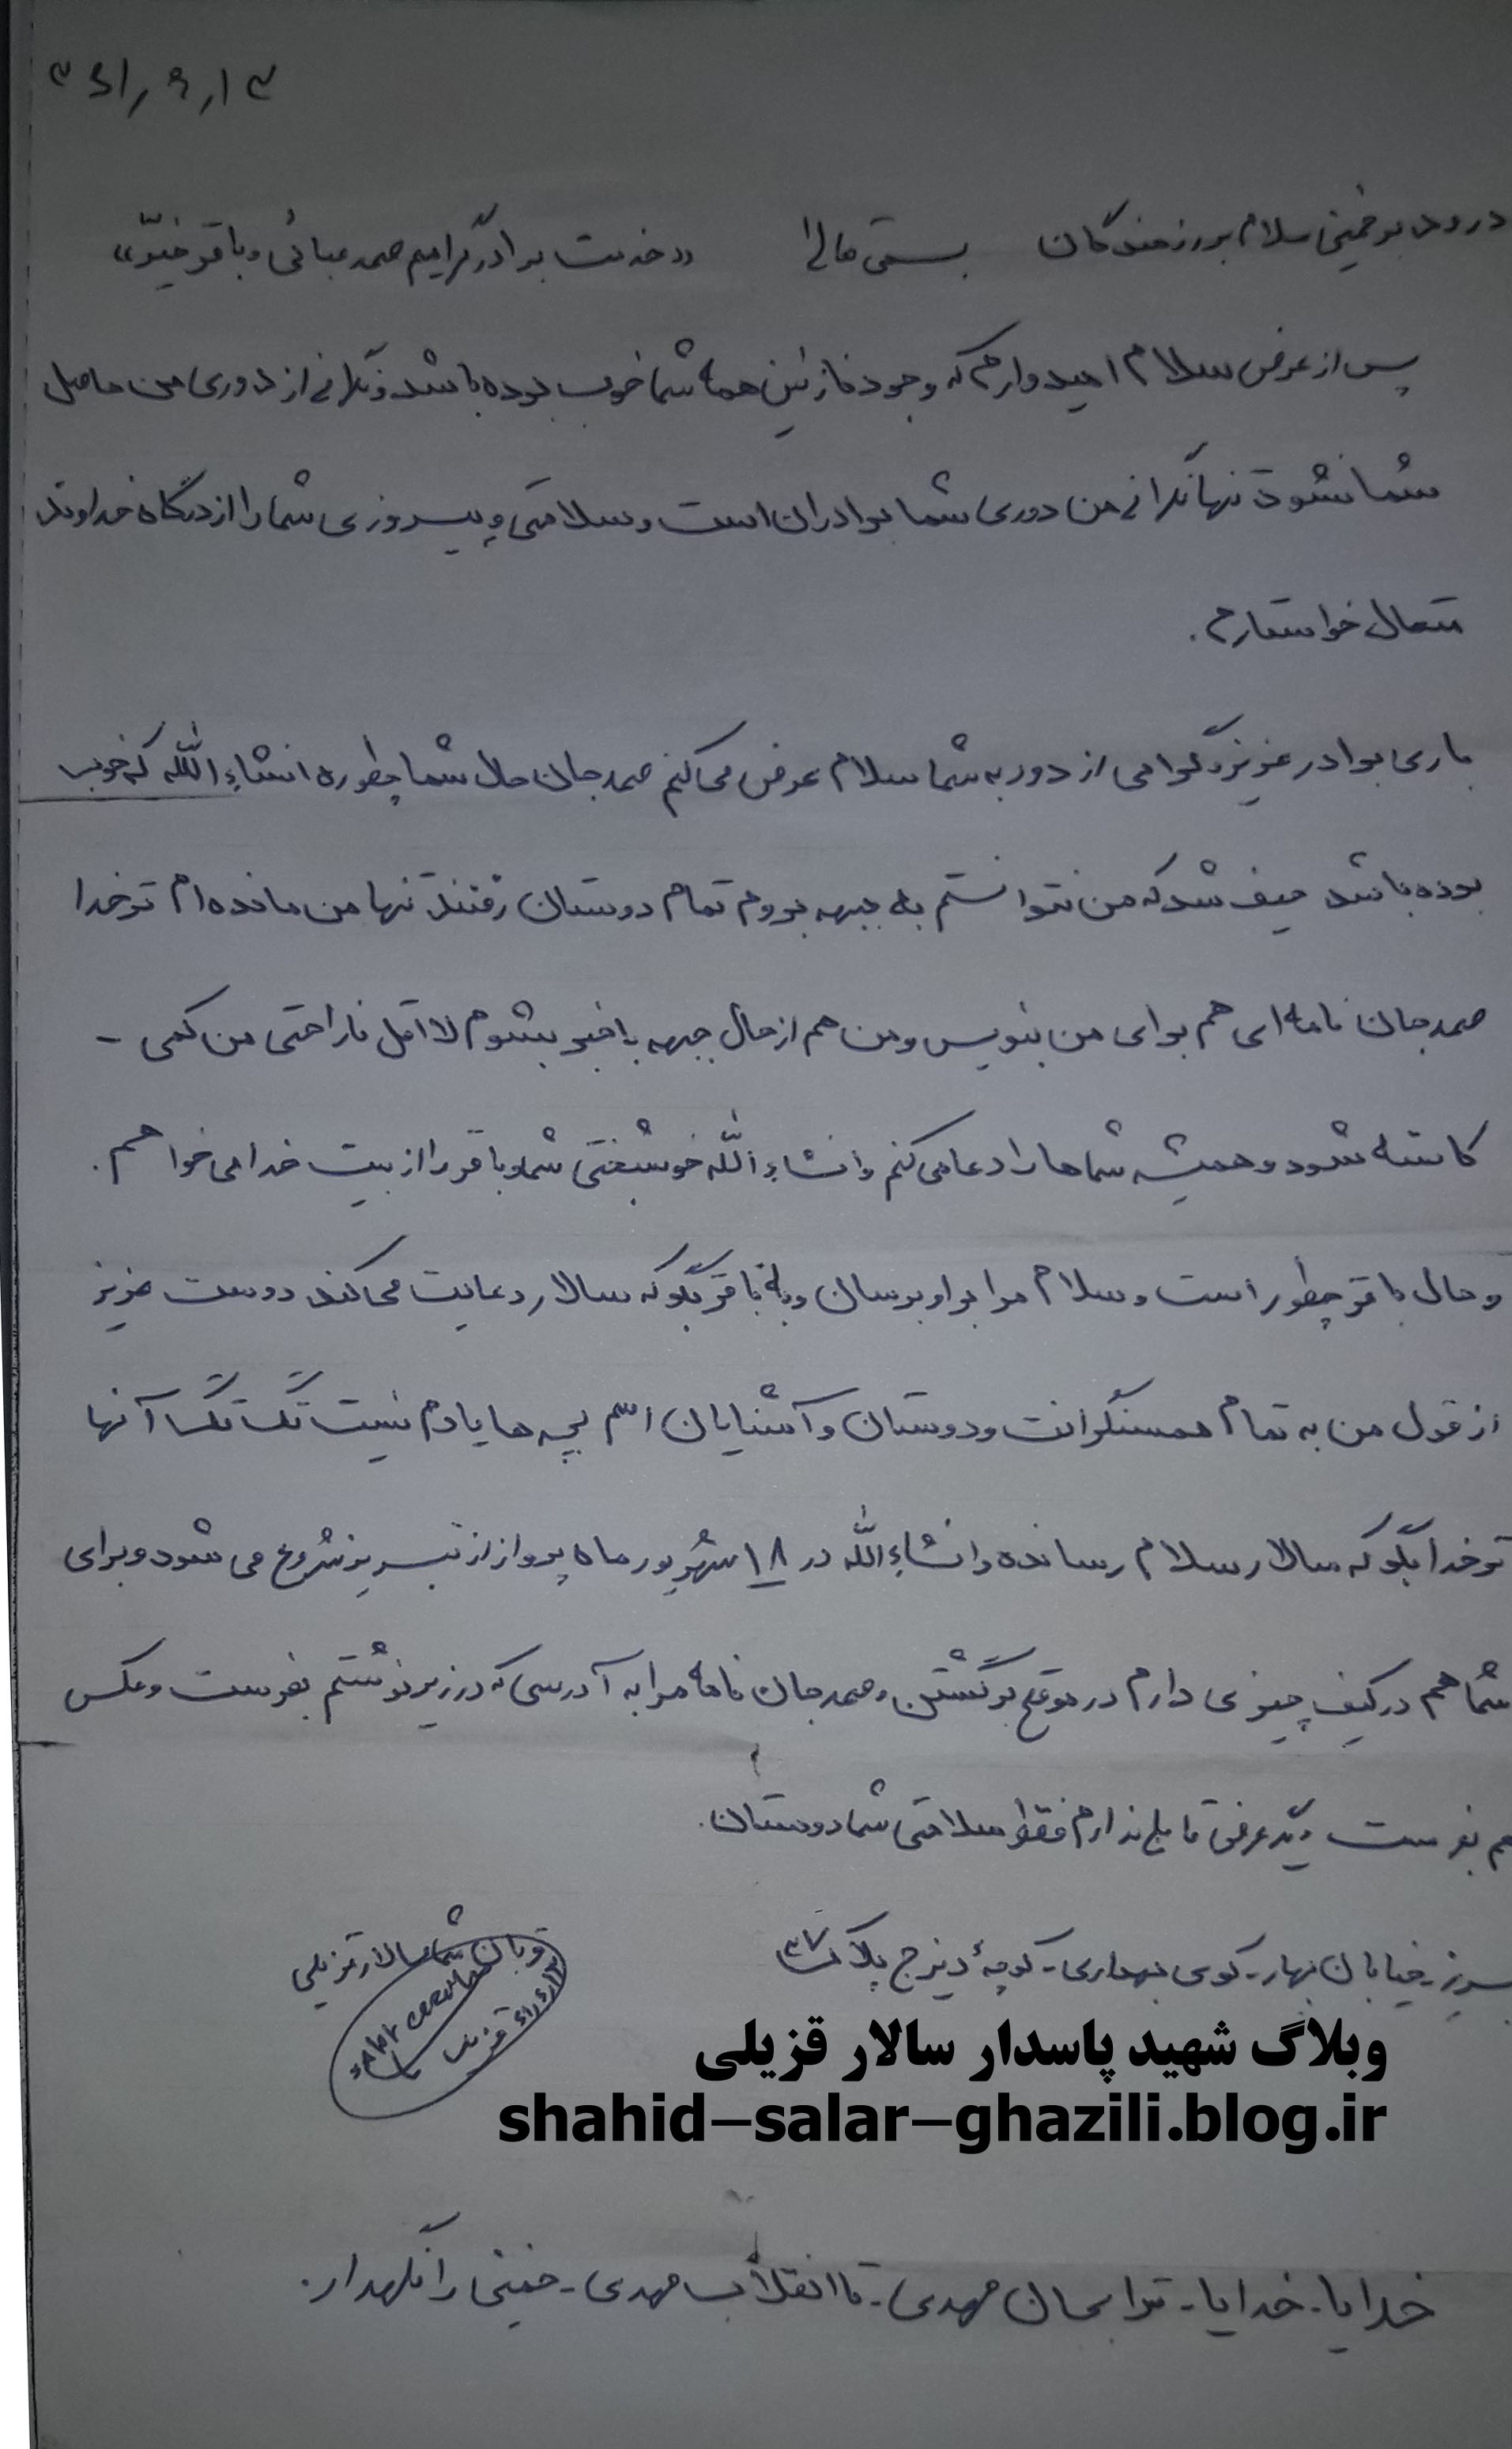 ۳ ۶۱٫ ۶٫ ۱۳
درود بر خمینی سلام بر رزمندگان بسمه تعالی «خدمت برادر گرامیم صمد عبائی و باقر خیّر»
پس از عرض سلام امیدوارم که وجود نازنین همه شما خوب بوده باشد و نگرانی از دوری من حاصل
شما نشود تنها نگرانی من دوری شما برادران است و سلامتی و پیروزی شما را از درگاه خداوند
متعال خواستارم.
باری برادر عزیز و گرامی از دور به شما سلام عرض می کنم صمد جان حال شما چطوره انشاءالله که خوب
بوده باشد حیف شد که من نتوانستم به جبهه بروم تمام دوستان رفتند تنها من مانده ام تو خدا
صمد جان نامه ای هم برای من بنویس و من هم از حال جبهه باخبر بشوم لااقل ناراحتی من کمی -
کاسته شود و همیشه شماها را دعا می کنم و انشاءالله خوشبختی شما و باقر را از بیت خدا می خواهم.
و حال باقر چطور است و سلام مرا بر او برسان و به باقر بگو که سالار دعایت می کند دوست عزیز
از قول من به تمام همسنگرانت و دوستان و آشنایان اسم بچه ها یادم نیست تک تک آنها
تو خدا بگو که سالار سلام رسانده و انشاءالله در ۱۸ شهریور ماه پرواز از تبریز شروع می شود و برای
شما هم در کیف چیزی دارم در موقع برگشتن و صمد جان نامه مرا به آدرسی که در زیر نوشتم بفرست و عکس
هم بفرست دیگر عرض قابلی ندارم فقط سلامتی شما دوستان.
تبریز - خیابان بهار - کوی بهداری - کوچهٔ دیزج پلاک ۳۷
قربان شما سالار قزیلی
وبلاگ شهید پاسدار سالار قزیلی
shahid-salar-ghazili.blog.ir
خدایا - خدایا - ترا بجان مهدی - تا انقلاب مهدی - خمینی را نگهدار.